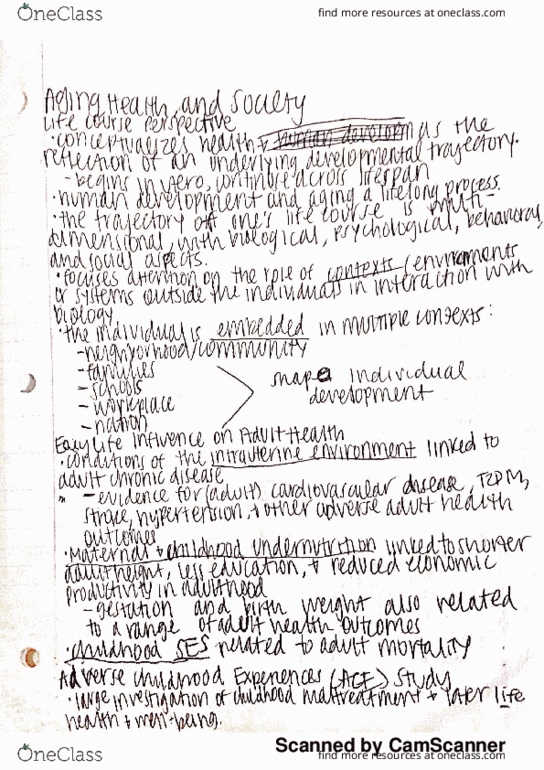 OneClass
find more resources at oneclass.com
Aging, Health, and Society
Life course perspective
· conceptualizes health + human develop as the
reflection of an underlying developmental trajectory.
- begins in utero, continue across lifespan
· human development and aging a lifelong process.
· the trajectory of one's life course is multi-
dimensional, with biological, psychological, behavioral,
and social aspects.
· focuses attention on the role of contexts (environments
or systems outside the individual) in interaction with
biology
· the individual is embedded in multiple contexts:
- neighborhood/community
- families
- schools
- workplace
- nation
shape individual
development
Early Life Influence on Adult Health
· conditions of the intrauterine environment linked to
adult chronic disease
- evidence for (adult) cardiovascular disease, T2DM,
stroke, hypertension, + other adverse adult health
outcomes
· Maternal + childhood undernutrition linked to shorter
adult height, less education, + reduced economic
productivity in adulthood
- gestation and birth weight also related
to a range of adult health outcomes
· childhood SES related to adult mortality
Adverse Childhood Experiences (ACE) Study
· large investigation of childhood maltreatment + later life
health + well-being.
Scanned by CamScanner
OneClass
find more resources at oneclass.com